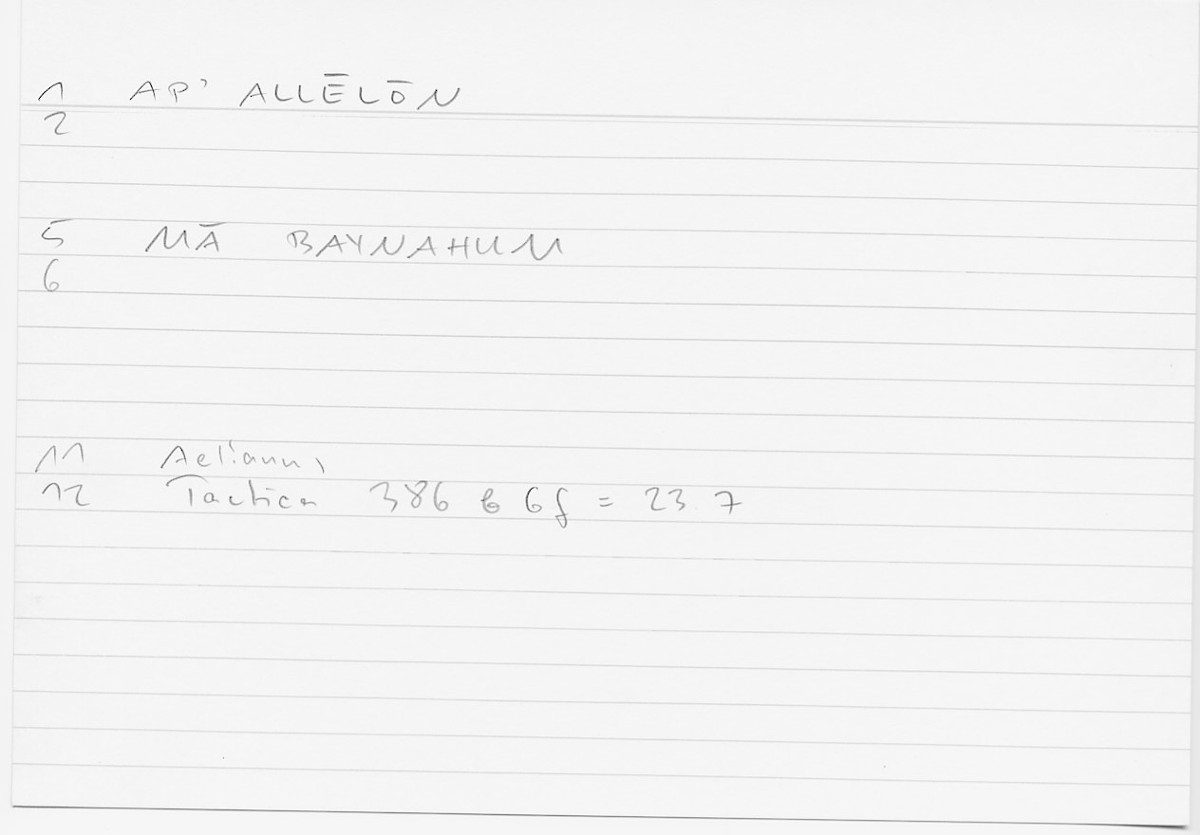 1 AP' ALLĒLŌN
2
5 MĀ BAYNAHUM
6
11 Aelianus
12 Tactica 386 b 6f = 23.7